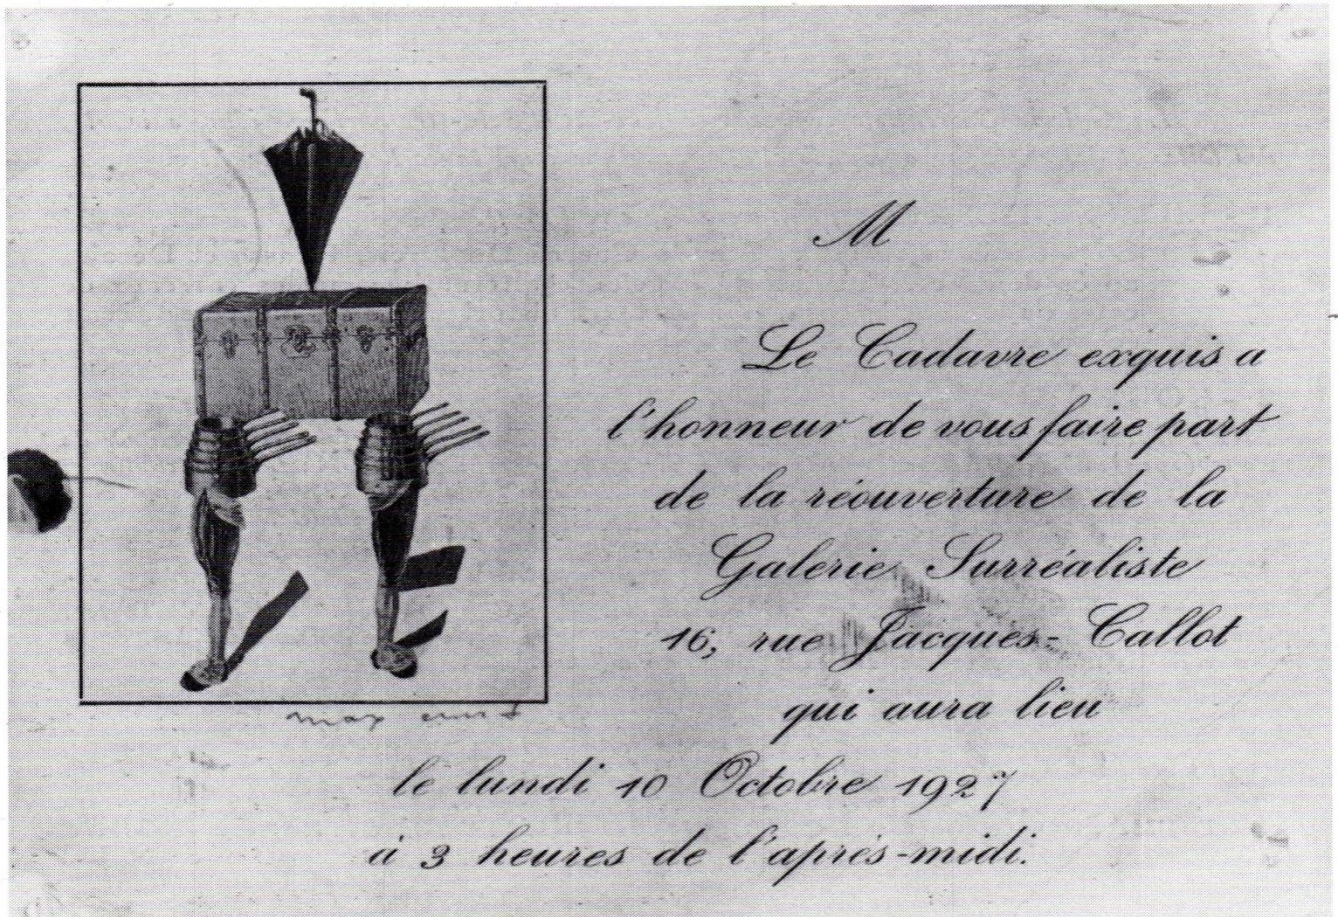 M
Le Cadavre exquis a
l'honneur de vous faire part
de la réouverture de la
Galerie Surréaliste
16, rue Jacques-Callot
qui aura lieu
le lundi 10 Octobre 1927
à 3 heures de l'après-midi.
max ernst